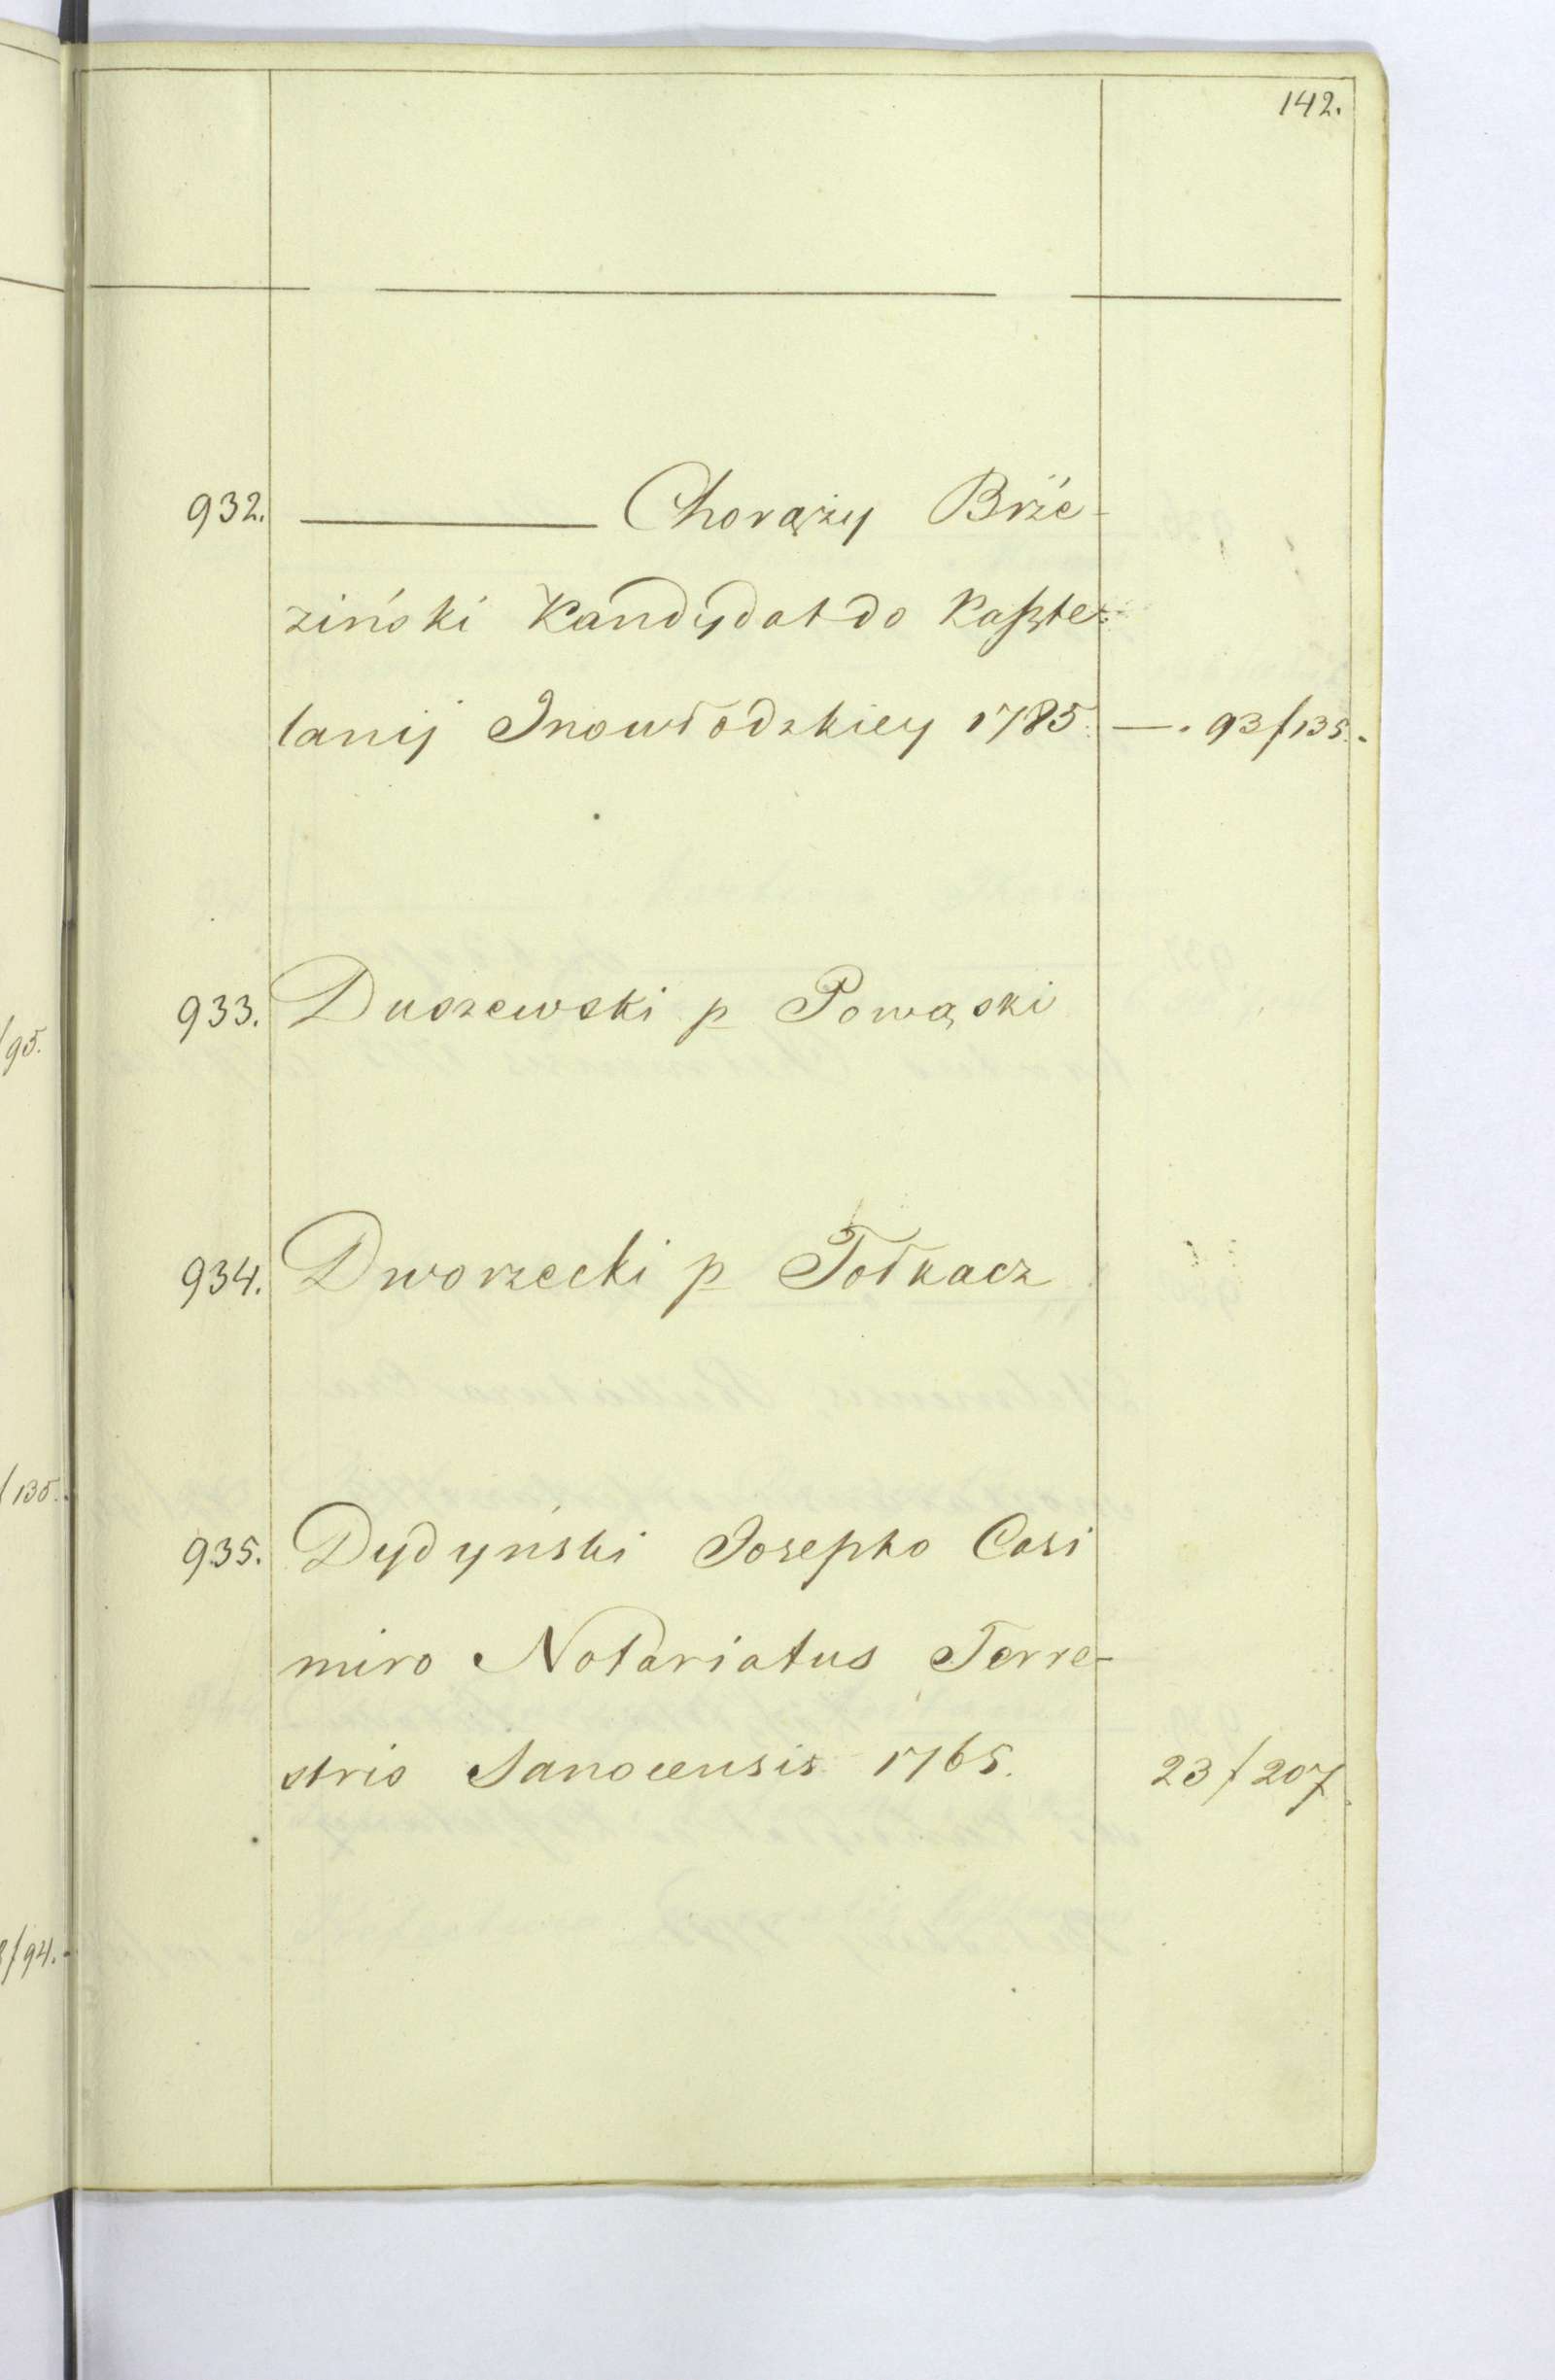 142.
932. ——— Chorąży Brźe-
ziński Kandydat do Kaszte=
lanij Inowłodzkiey 1785. —. 93/135.
933. Duszewski p Powąski
934. Dworzecki p Tołkacz
935. Dydyński Josepho Casi
miro Notariatus Terre-
stris Sanocensis 1765. 23/207.
/95.
/135.
/94.